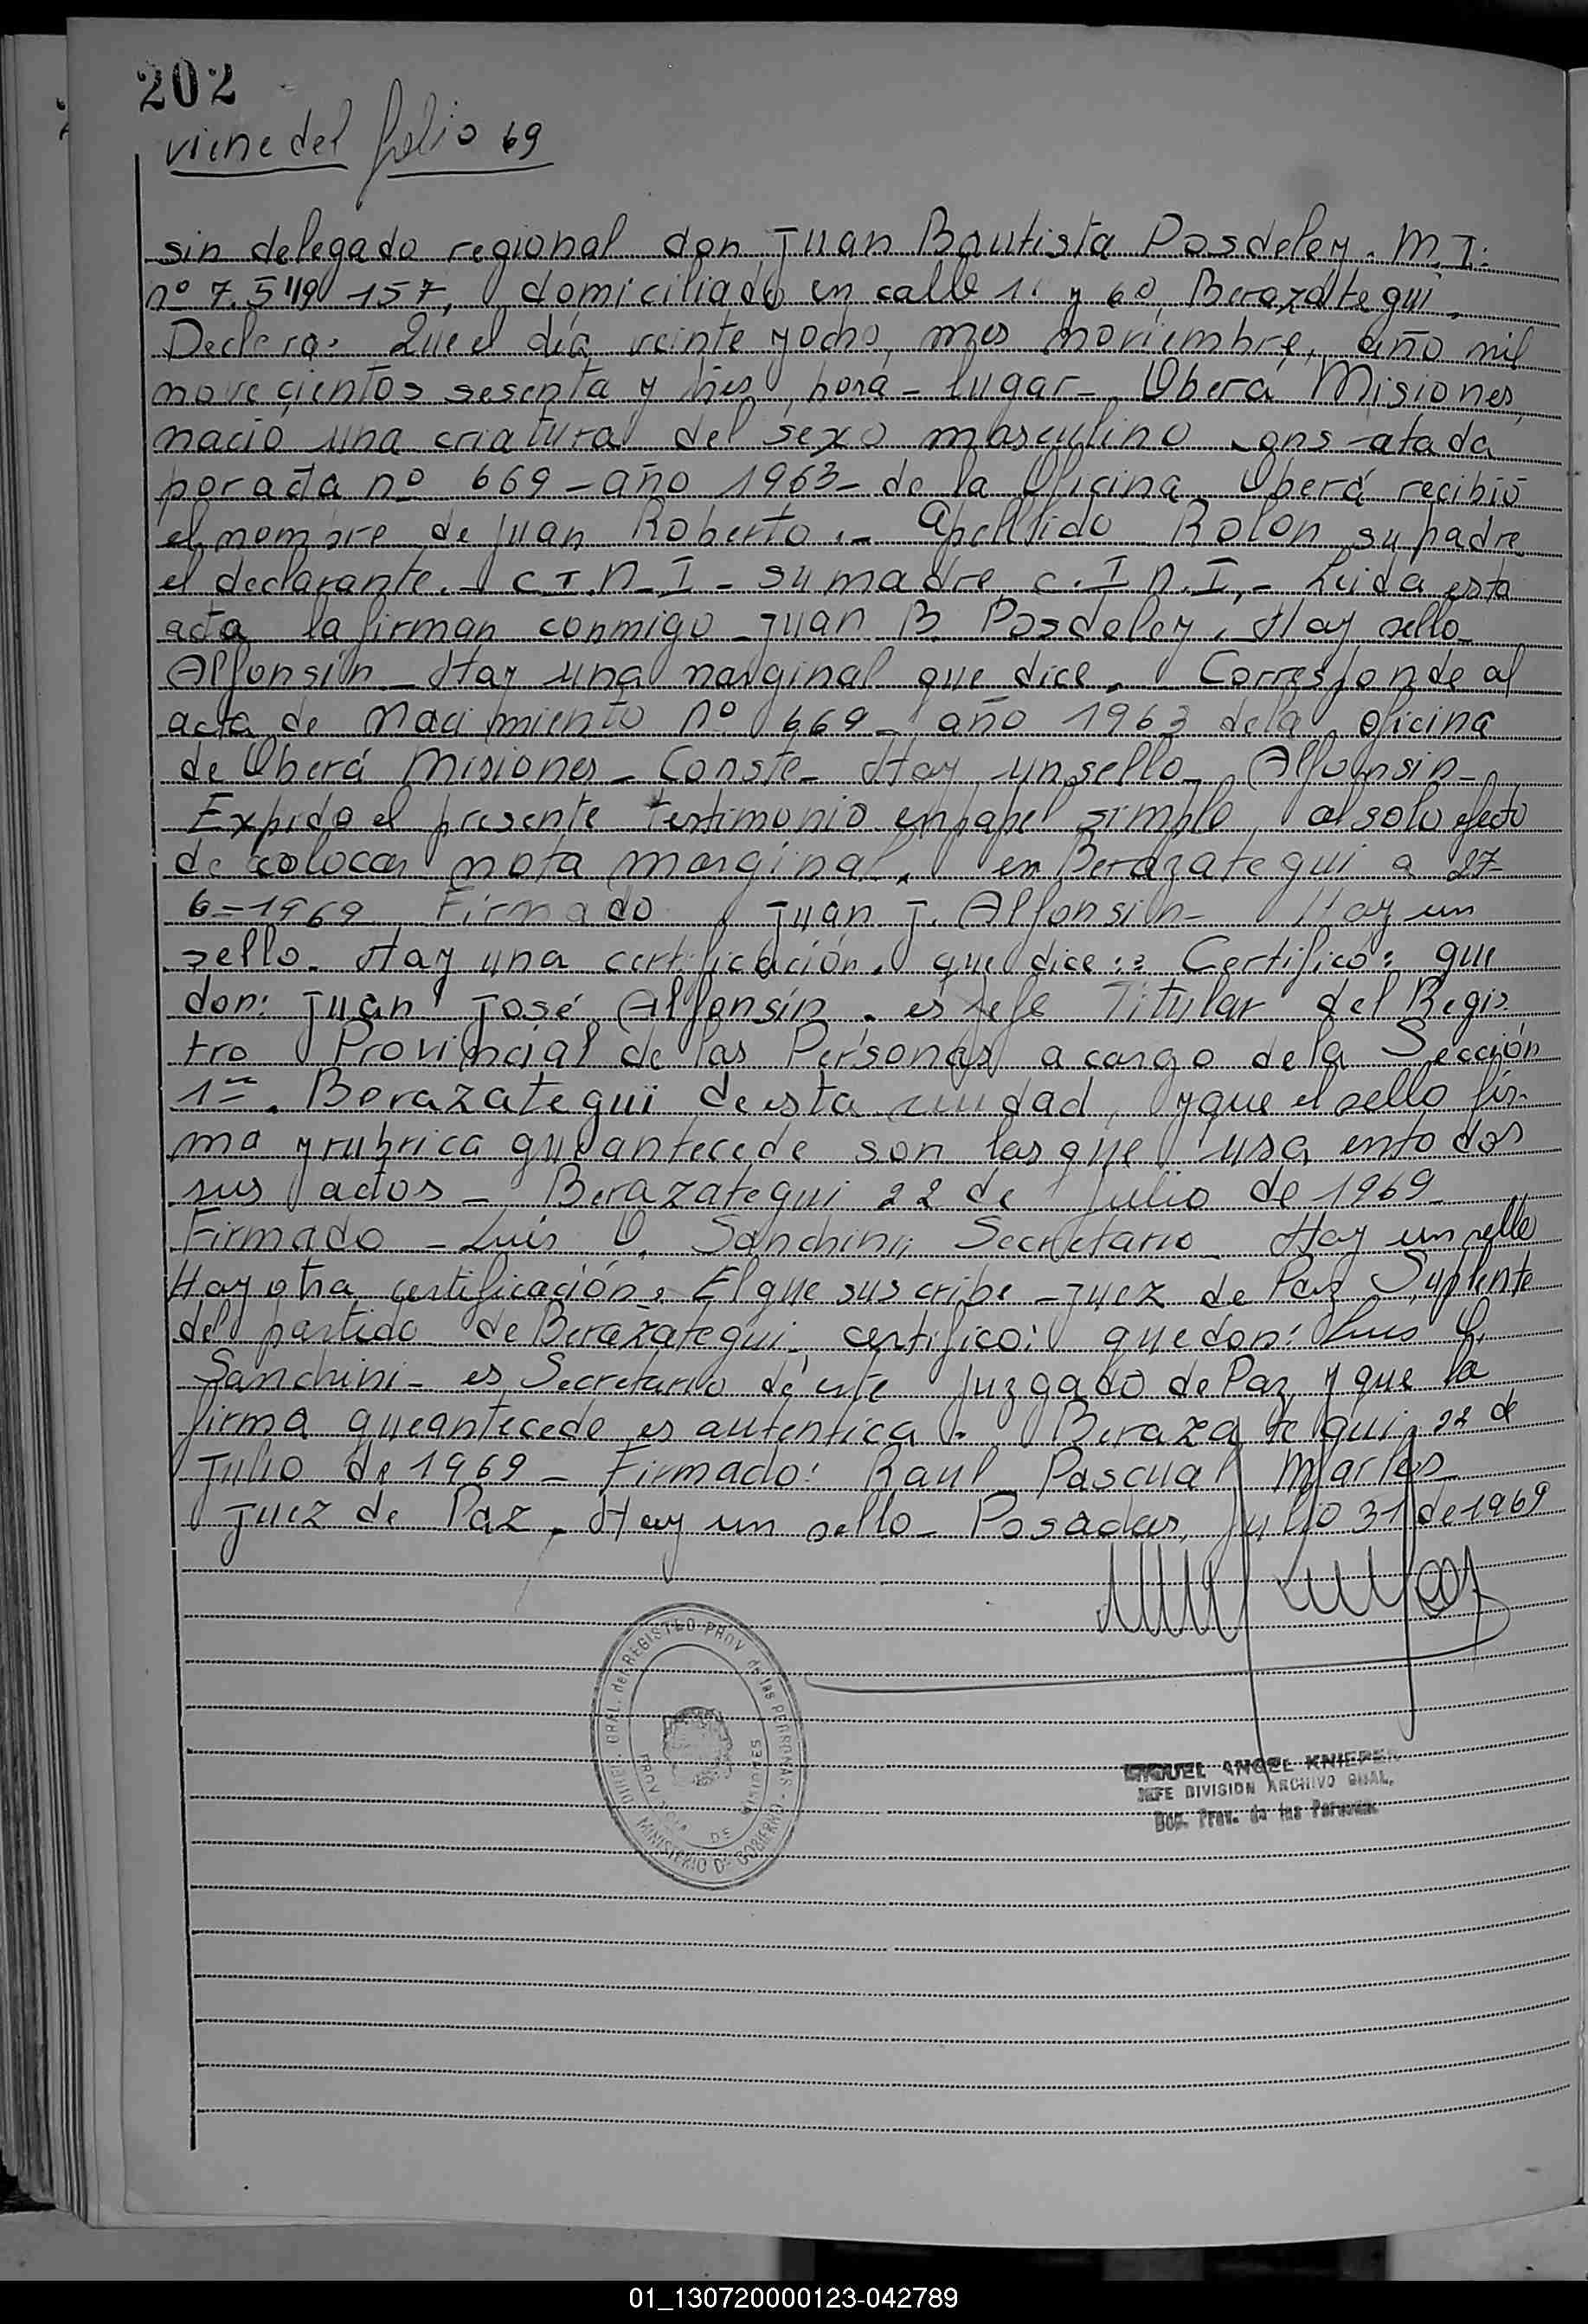 202
viene del folio 69
sin delegado regional don Juan Bautista Posdeley. M.I:
nº 7.549 157, domiciliado en calle 1. y 60, Berazátegui.
Declara: Que el día veinte y ocho, mes noviembre, año mil
novecientos sesenta y tres, hora - lugar - Oberá Misiones,
nació una criatura del sexo masculino cons-atada
por acta nº 669 - año 1963 - de la Oficina Oberá recibió
el nombre de Juan Roberto.- Apelllido Rolon su padre
el declarante. - C.I.N.I - su madre C.I N.I,- Leida esta
acta la firman conmigo - Juan B. Posdeley. Hay sello
Alfonsín - Hay una marginal que dice. Corresponde al
acta de nacimiento nº 669 - año 1963 de la oficina
de Oberá Misiones - Conste - Hay un sello - Alfonsin -
Expido el presente testimonio en papel simple, al solo efecto
de colocar nota marginal. en Berazategui a 27
6-1969 Firmado Juan J. Alfonsin - Hay un
sello. Hay una certificación. que dice:: Certifico: que
don: Juan José Alfonsín. es Jefe Titular del Regis
tro Provincial de las Personas a cargo de la Sección
1ª. Berazategui de esta ciudad, y que el sello fir-
ma y rubrica que antecede son las que usa en todos
sus actos - Berazategui 22 de Julio de 1969
Firmado - Luis O. Sanchini Secretario - Hay un sello
Hay otra certificación. El que suscribe - Juez de Paz Suplente
del partido de Berazategui, certifico: que don: Luis
Sanchini - es Secretario de este Juzgado de Paz y que la
firma que antecede es autentica. Berazategui, 22 de
Julio de 1969 - Firmado: Raul Pascual
Juez de Paz. Hay un sello - Posadas, Julio 31 de 1969
DIREC. GRAL. del REGISTRO PROV. de las PERSONAS - MINISTERIO DE GOBIERNO
PROVINCIA DE MISIONES
MIGUEL ANGEL KNIEPER
JEFE DIVISION ARCHIVO GRAL.
Prov. de las Personas
01_130720000123-042789